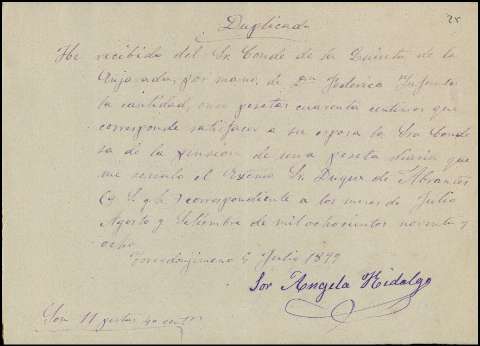 28
Duplicado
He recibido del Sr. Conde de la Quinta de la
Enjarada, por mano, de Dn Federico
la cantidad, once pesetas cuarenta centimos que
corresponde satisfacer a su esposa la Sra Conde
sa de la pension de una peseta diaria que
me el Exsmo Sr. Duque de Abrantes
(q. S. g. h.) correspondiente a los meses de Julio
Agosto y Setiembre de mil ochocientos noventa y
ocho.
Torredonjimeno 4 Julio 1899
Sor Angela Hidalgo
Son 11 pesetas 40 centms